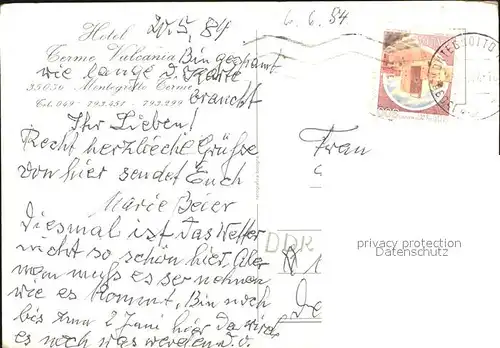 20.5.84
6.6.84
Hotel
Terme Vulcania
Bin gespannt
wie lange d. Karte
35036 Montegrotto Terme
braucht
Tel. 049 - 793.451 - 793.299
Ihr Lieben!
Recht herzliche Grüße
von hier sendet Euch
Marie Beier
Diesmal ist das Wetter
nicht so schön hier, aber
man muss es so nehmen
wie es kommt. Bin noch
bis zum 2 Juni hier da wird
es noch was werden
Frau
DDR
privacy protection
Datenschutz